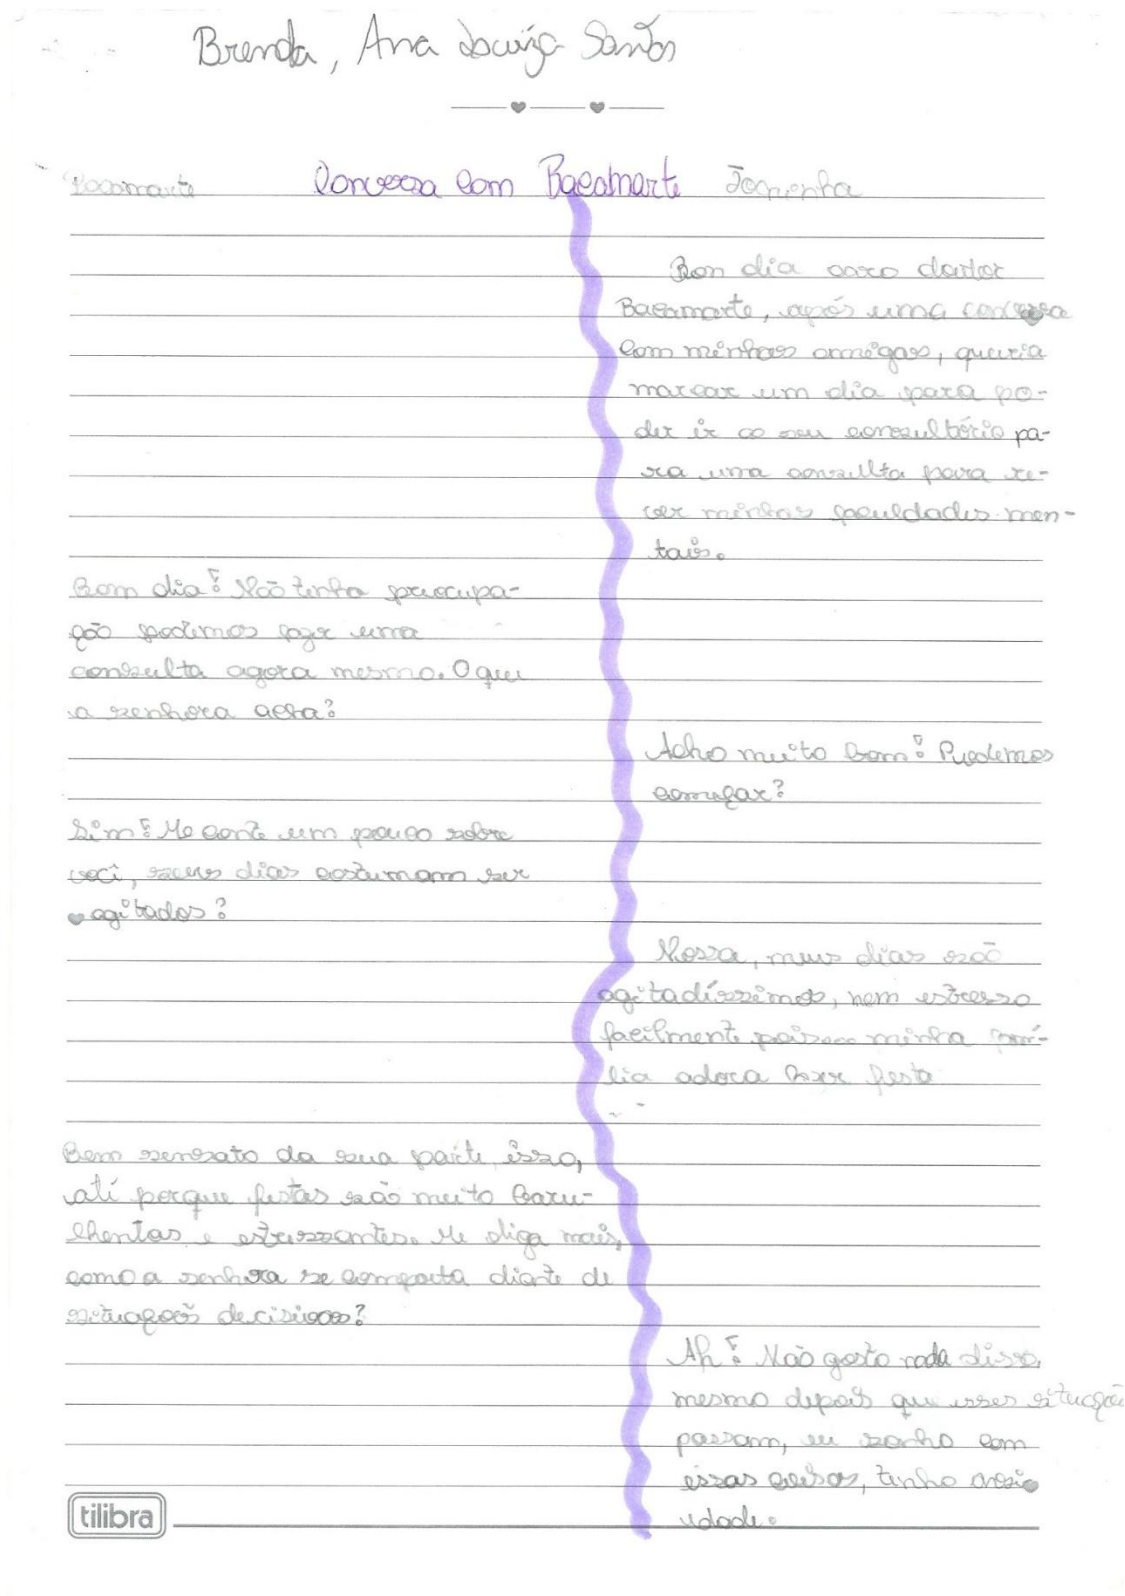 Brenda, Ana Louiza Santos
Bacamarte Conversa com Bacamarte Joaninha
Bom dia caro doutor
Bacamarte, após uma conversa
com minhas amigas, queria
marcar um dia para po-
der ir ao seu consultório pa-
ra uma consulta para re-
ver minhas faculdades men-
tais.
Bom dia! Não tenha preocupa-
ção podemos fazer uma
consulta agora mesmo. O que
a senhora acha?
Acho muito bom! Podemos
começar?
Sim! Me conte um pouco sobre
você, seus dias costumam ser
agitados?
Nossa, meus dias são
agitadíssimos, nem estresso
facilmente pois minha famí-
lia adora fazer festa
Bem sensato da sua parte isso,
até porque festas são muito baru-
lhentas e estressantes. Me diga mais,
como a senhora se comporta diante de
situações decisivas?
Ah! Não gosto nada disso,
mesmo depois que esses situações
passam, eu sonho com
essas coisas, tenho ansie
dade.
tilibra